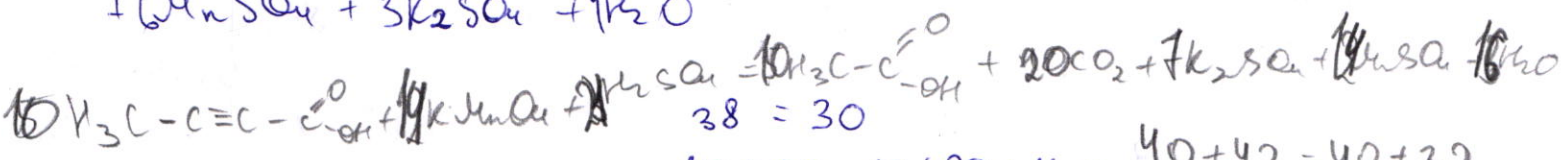 +6MnSO4 + 3K2SO4 + 4H2O
10H3C-C≡C-C=O-OH + 14KMnO4 + 21H2SO4 = 10H3C-C=O-OH + 20CO2 + 7K2SO4 + 14MnSO4 16H2O
38 = 30
40+42 = 40+